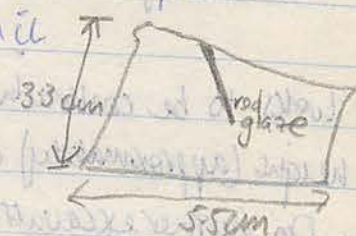 3.3 cm
red
glaze
5.5cm